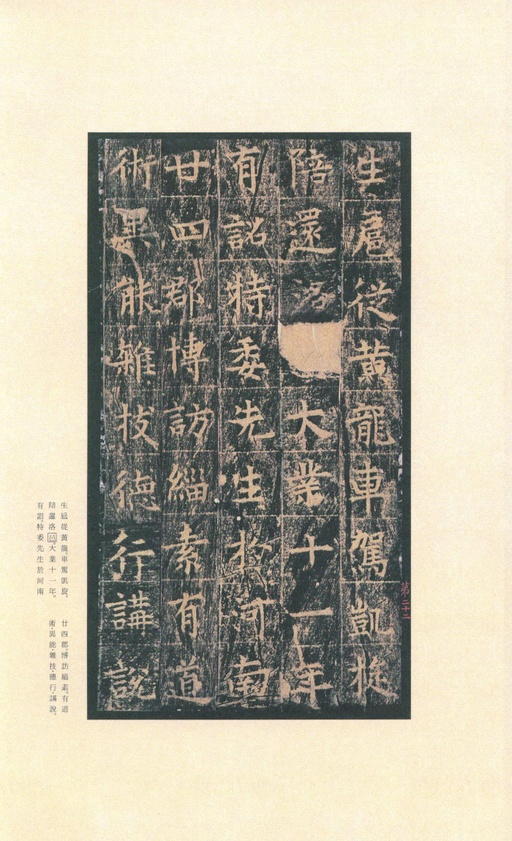 生扈從黃龍車駕凱旋
陪還洛大業十一年
有詔特委先生於河南
廿四郡博訪緇素有道
術異能雜技德行講說
第二十二
生扈從黃龍車駕凱旋。
陪還洛邑。大業十一年。
有詔特委先生於河南
廿四郡博訪緇素。有道
術。異能。雜技。德行。講說。